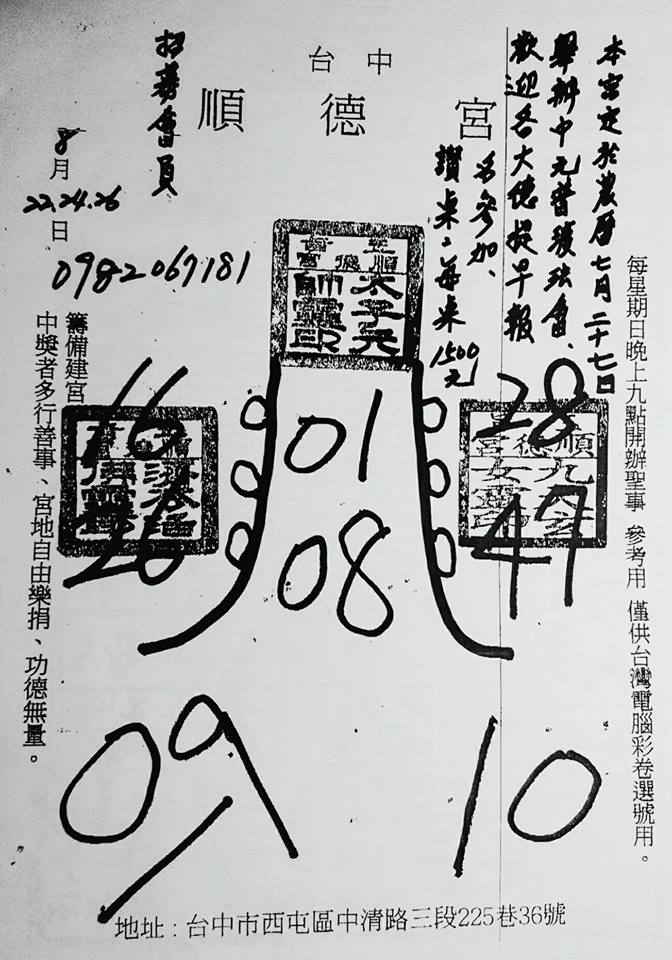 台中
順德宮
本宮定於農曆七月二十七日
舉辦中元普渡法會、
歡迎各大德提早報
名參加、
讚桌：每桌1500元
招募會員
8月
22.24.26
日
0982067181
太子元
帥靈印
每星期日晚上九點開辦聖事 參考用 僅供台灣電腦彩卷選號用。
籌備建宮
中獎者多行善事、宮地自由樂捐、功德無量。
16
26
01
08
28
47
09
10
地址：台中市西屯區中清路三段225巷36號